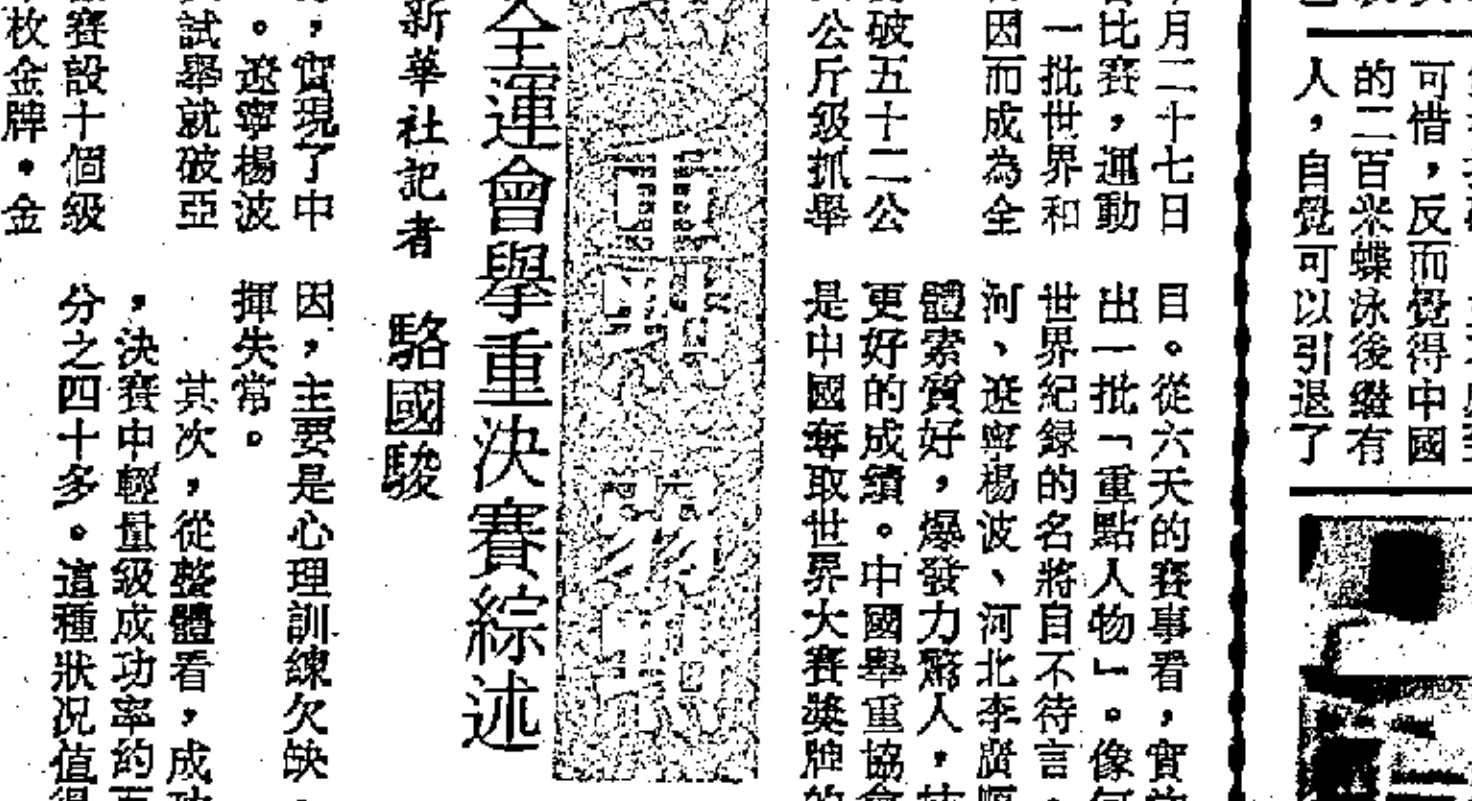 可惜，反而覺得中國
的二百米蝶泳後繼有
人，自覺可以引退了
月二十七日
比賽，運動
一批世界和
因而成為全
破五十二公
公斤級抓舉
目。從六天的賽事看，實
出一批「重點人物」。像
世界紀錄的名將自不待言
河、遼寧楊波、河北李廣
體素質好，爆發力驚人，
更好的成績。中國舉重協
是中國奪取世界大賽獎牌
全運會舉重決賽綜述
新華社記者 駱國駿
，實現了中
。遼寧楊波
試舉就破亞
賽設十個級
枚金牌。金
因，主要是心理訓練欠缺
揮失常。
其次，從整體看，成
，決賽中輕量級成功率約
分之四十多。這種狀況值